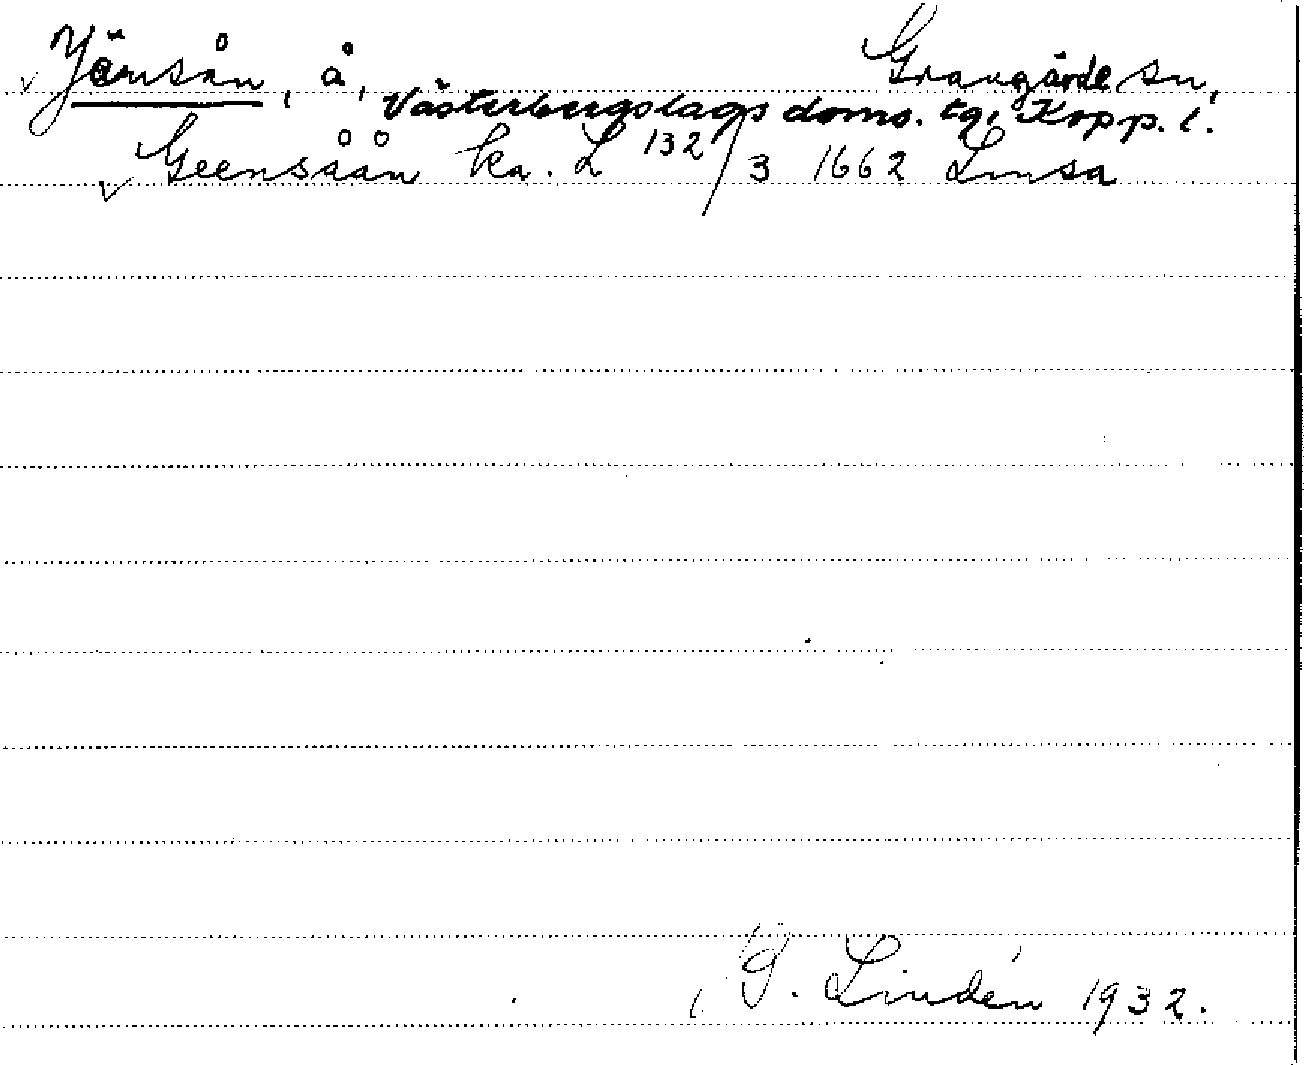 Jämsån, å, Grangärde sn,
Västerbergslags doms. tg, Kopp. l.
Geensåån ka. L 132/3 1662 Lmsa
G. Lindén 1932.